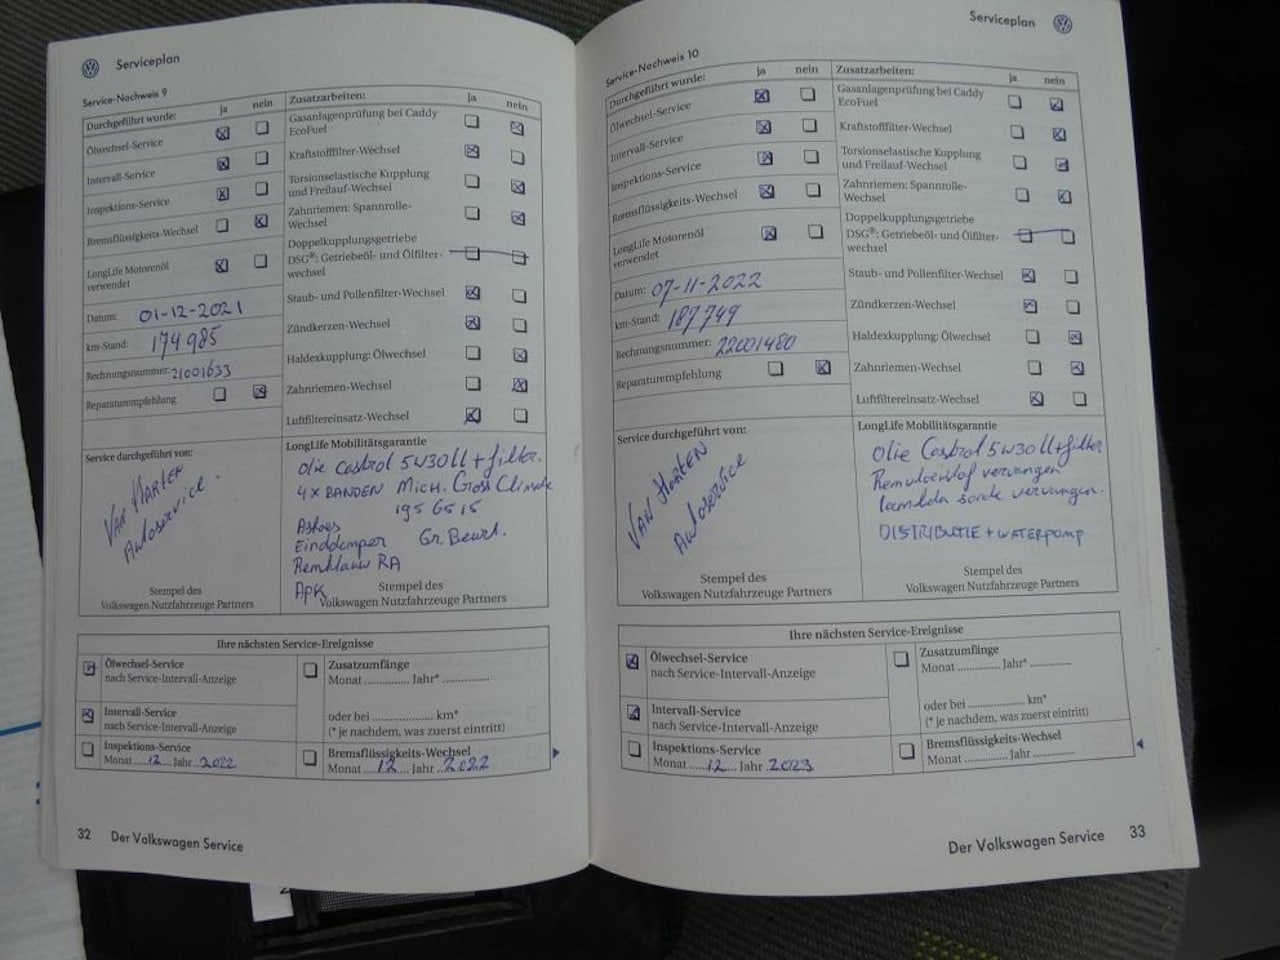 Serviceplan
Service-Nachweis 9
Durchgeführt wurde: ja nein
Ölwechsel-Service
Intervall-Service
Inspektions-Service
Bremsflüssigkeits-Wechsel
LongLife Motorenöl
verwendet
Datum: 01-12-2021
km-Stand: 174985
Rechnungsnummer: 21001633
Reparaturempfehlung
Service durchgeführt von:
VAN HARTEN
Autoservice.
Stempel des
Volkswagen Nutzfahrzeuge Partners
Zusatzarbeiten: ja nein
Gasanlagenprüfung bei Caddy
EcoFuel
Kraftstofffilter-Wechsel
Torsionselastische Kupplung
und Freilauf-Wechsel
Zahnriemen: Spannrolle-
Wechsel
Doppelkupplungsgetriebe
DSG®: Getriebeöl- und Ölfilter-
wechsel
Staub- und Pollenfilter-Wechsel
Zündkerzen-Wechsel
Haldexkupplung: Ölwechsel
Zahnriemen-Wechsel
Luftfiltereinsatz-Wechsel
LongLife Mobilitätsgarantie
Olie Castrol 5W30 LL + filter.
4x BANDEN Mich. Cross Climate
195 65 15
Einddemper Gr. Beurt.
Remklauw RA
APK
Stempel des
Volkswagen Nutzfahrzeuge Partners
Ihre nächsten Service-Ereignisse
Ölwechsel-Service
nach Service-Intervall-Anzeige
Intervall-Service
nach Service-Intervall-Anzeige
Inspektions-Service
Monat ....12.... Jahr ..2022
Zusatzumfänge
Monat .............. Jahr* ..............
oder bei .................... km*
(* je nachdem, was zuerst eintritt)
Bremsflüssigkeits-Wechsel
Monat ....12.... Jahr ..2022
32 Der Volkswagen Service
Serviceplan
Service-Nachweis 10
Durchgeführt wurde: ja nein
Ölwechsel-Service
Intervall-Service
Inspektions-Service
Bremsflüssigkeits-Wechsel
LongLife Motorenöl
verwendet
Datum: 07-11-2022
km-Stand: 187749
Rechnungsnummer: 22001480
Reparaturempfehlung
Service durchgeführt von:
VAN HARTEN
Autoservice
Stempel des
Volkswagen Nutzfahrzeuge Partners
Zusatzarbeiten: ja nein
Gasanlagenprüfung bei Caddy
EcoFuel
Kraftstofffilter-Wechsel
Torsionselastische Kupplung
und Freilauf-Wechsel
Zahnriemen: Spannrolle-
Wechsel
Doppelkupplungsgetriebe
DSG®: Getriebeöl- und Ölfilter-
wechsel
Staub- und Pollenfilter-Wechsel
Zündkerzen-Wechsel
Haldexkupplung: Ölwechsel
Zahnriemen-Wechsel
Luftfiltereinsatz-Wechsel
LongLife Mobilitätsgarantie
Olie Castrol 5W30 LL + filter
Remvloeistof vervangen
lambda sonde vervangen.
DISTRIBUTIE + WATERPOMP
Stempel des
Volkswagen Nutzfahrzeuge Partners
Ihre nächsten Service-Ereignisse
Ölwechsel-Service
nach Service-Intervall-Anzeige
Intervall-Service
nach Service-Intervall-Anzeige
Inspektions-Service
Monat .....12.... Jahr .2023
Zusatzumfänge
Monat .............. Jahr* .............
oder bei .................... km*
(* je nachdem, was zuerst eintritt)
Bremsflüssigkeits-Wechsel
Monat .............. Jahr .............
Der Volkswagen Service 33